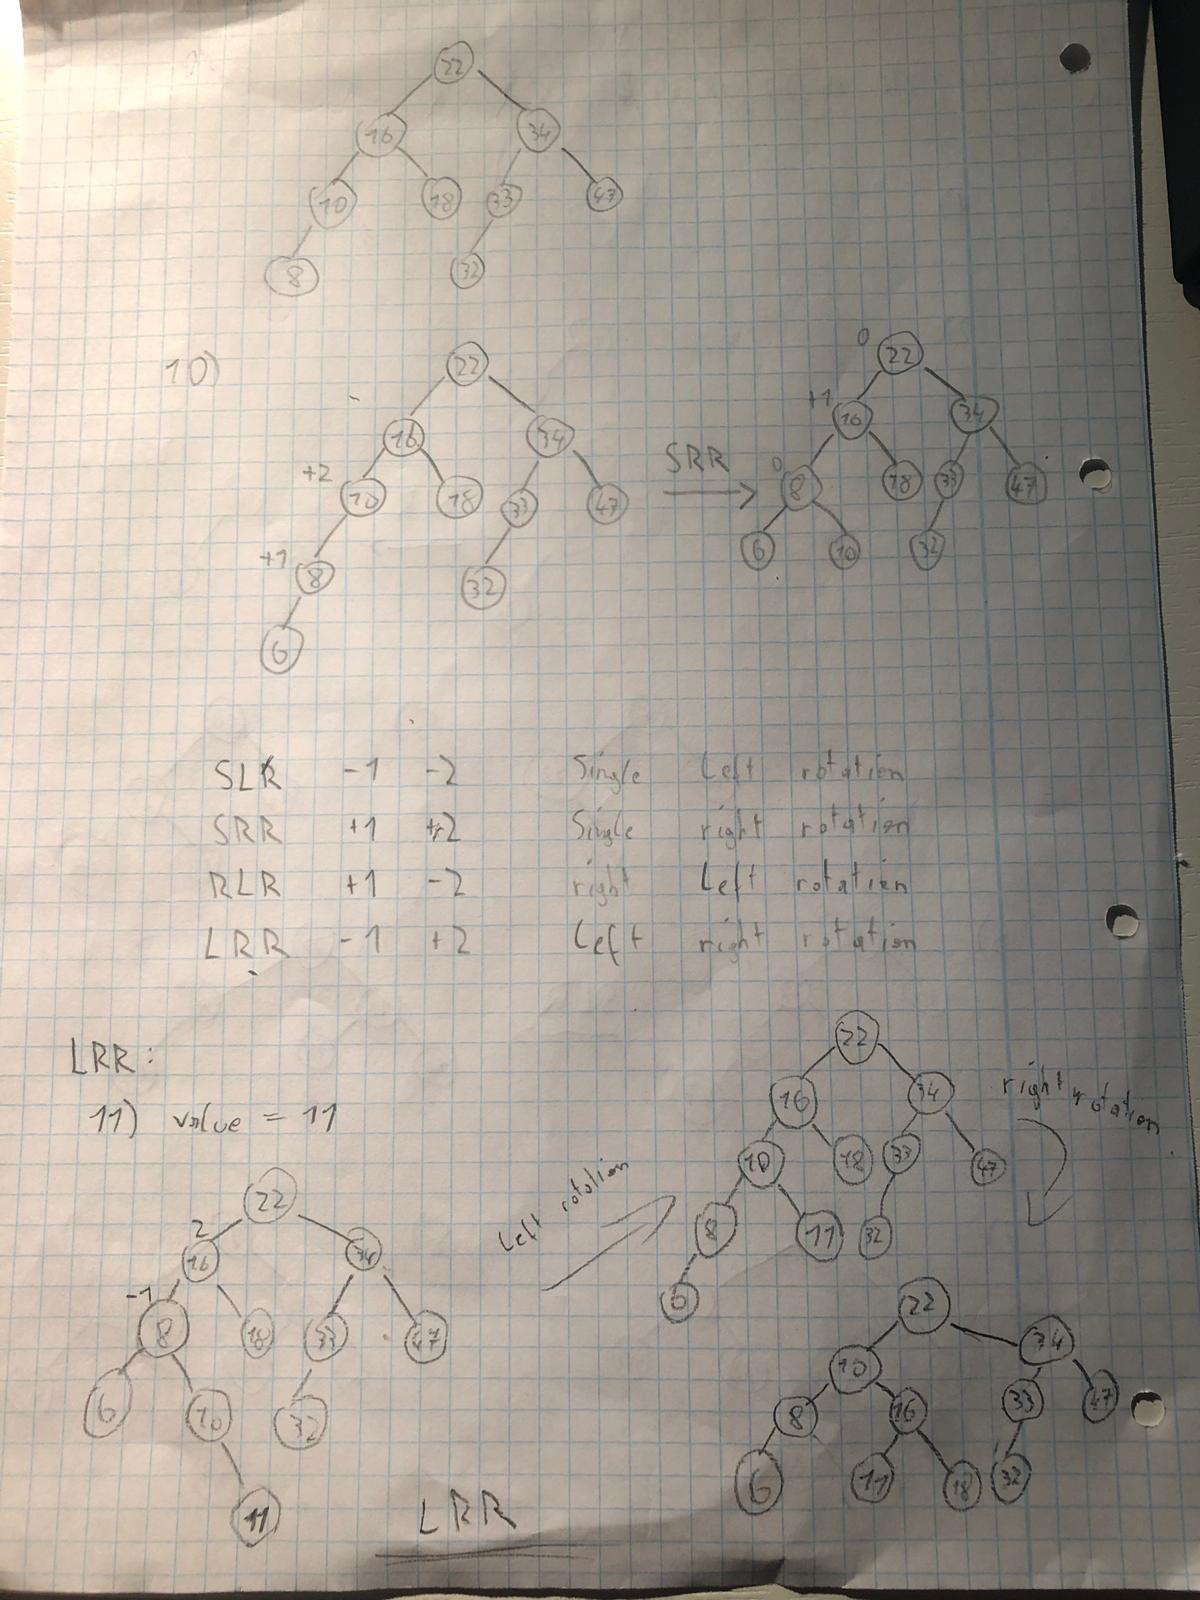 22
16 34
10 18 33 47
8 32
10)
22
16 34
+2 10 18 33 47
+1 8 32
6
SRR
0 22
+1 16 34
0 8 18 33 47
6 10 32
SLR -1 -2 Single Left rotation
SRR +1 +2 Single right rotation
RLR +1 -2 right Left rotation
LRR -1 +2 Left right rotation
LRR:
11) value = 11
22
2 16 34
-1 8 18 33 47
6 10 32
11
Left rotation
22
16 34
10 18 33 47
8 11 32
6
right rotation
22
10 34
8 16 33 47
6 11 18 32
LRR